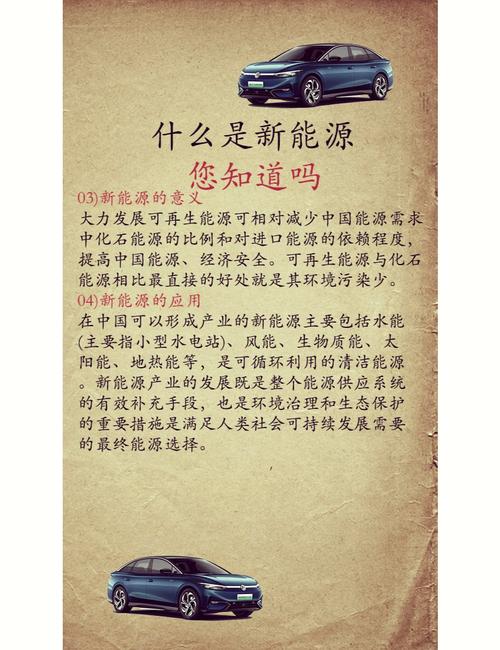 什么是新能源
您知道吗
03)新能源的意义
大力发展可再生能源可相对减少中国能源需求
中化石能源的比例和对进口能源的依赖程度，
提高中国能源、经济安全。可再生能源与化石
能源相比最直接的好处就是其环境污染少。
04)新能源的应用
在中国可以形成产业的新能源主要包括水能
(主要指小型水电站)、风能、生物质能、太
阳能、地热能等，是可循环利用的清洁能源
。新能源产业的发展既是整个能源供应系统
的有效补充手段，也是环境治理和生态保护
的重要措施是满足人类社会可持续发展需要
的最终能源选择。